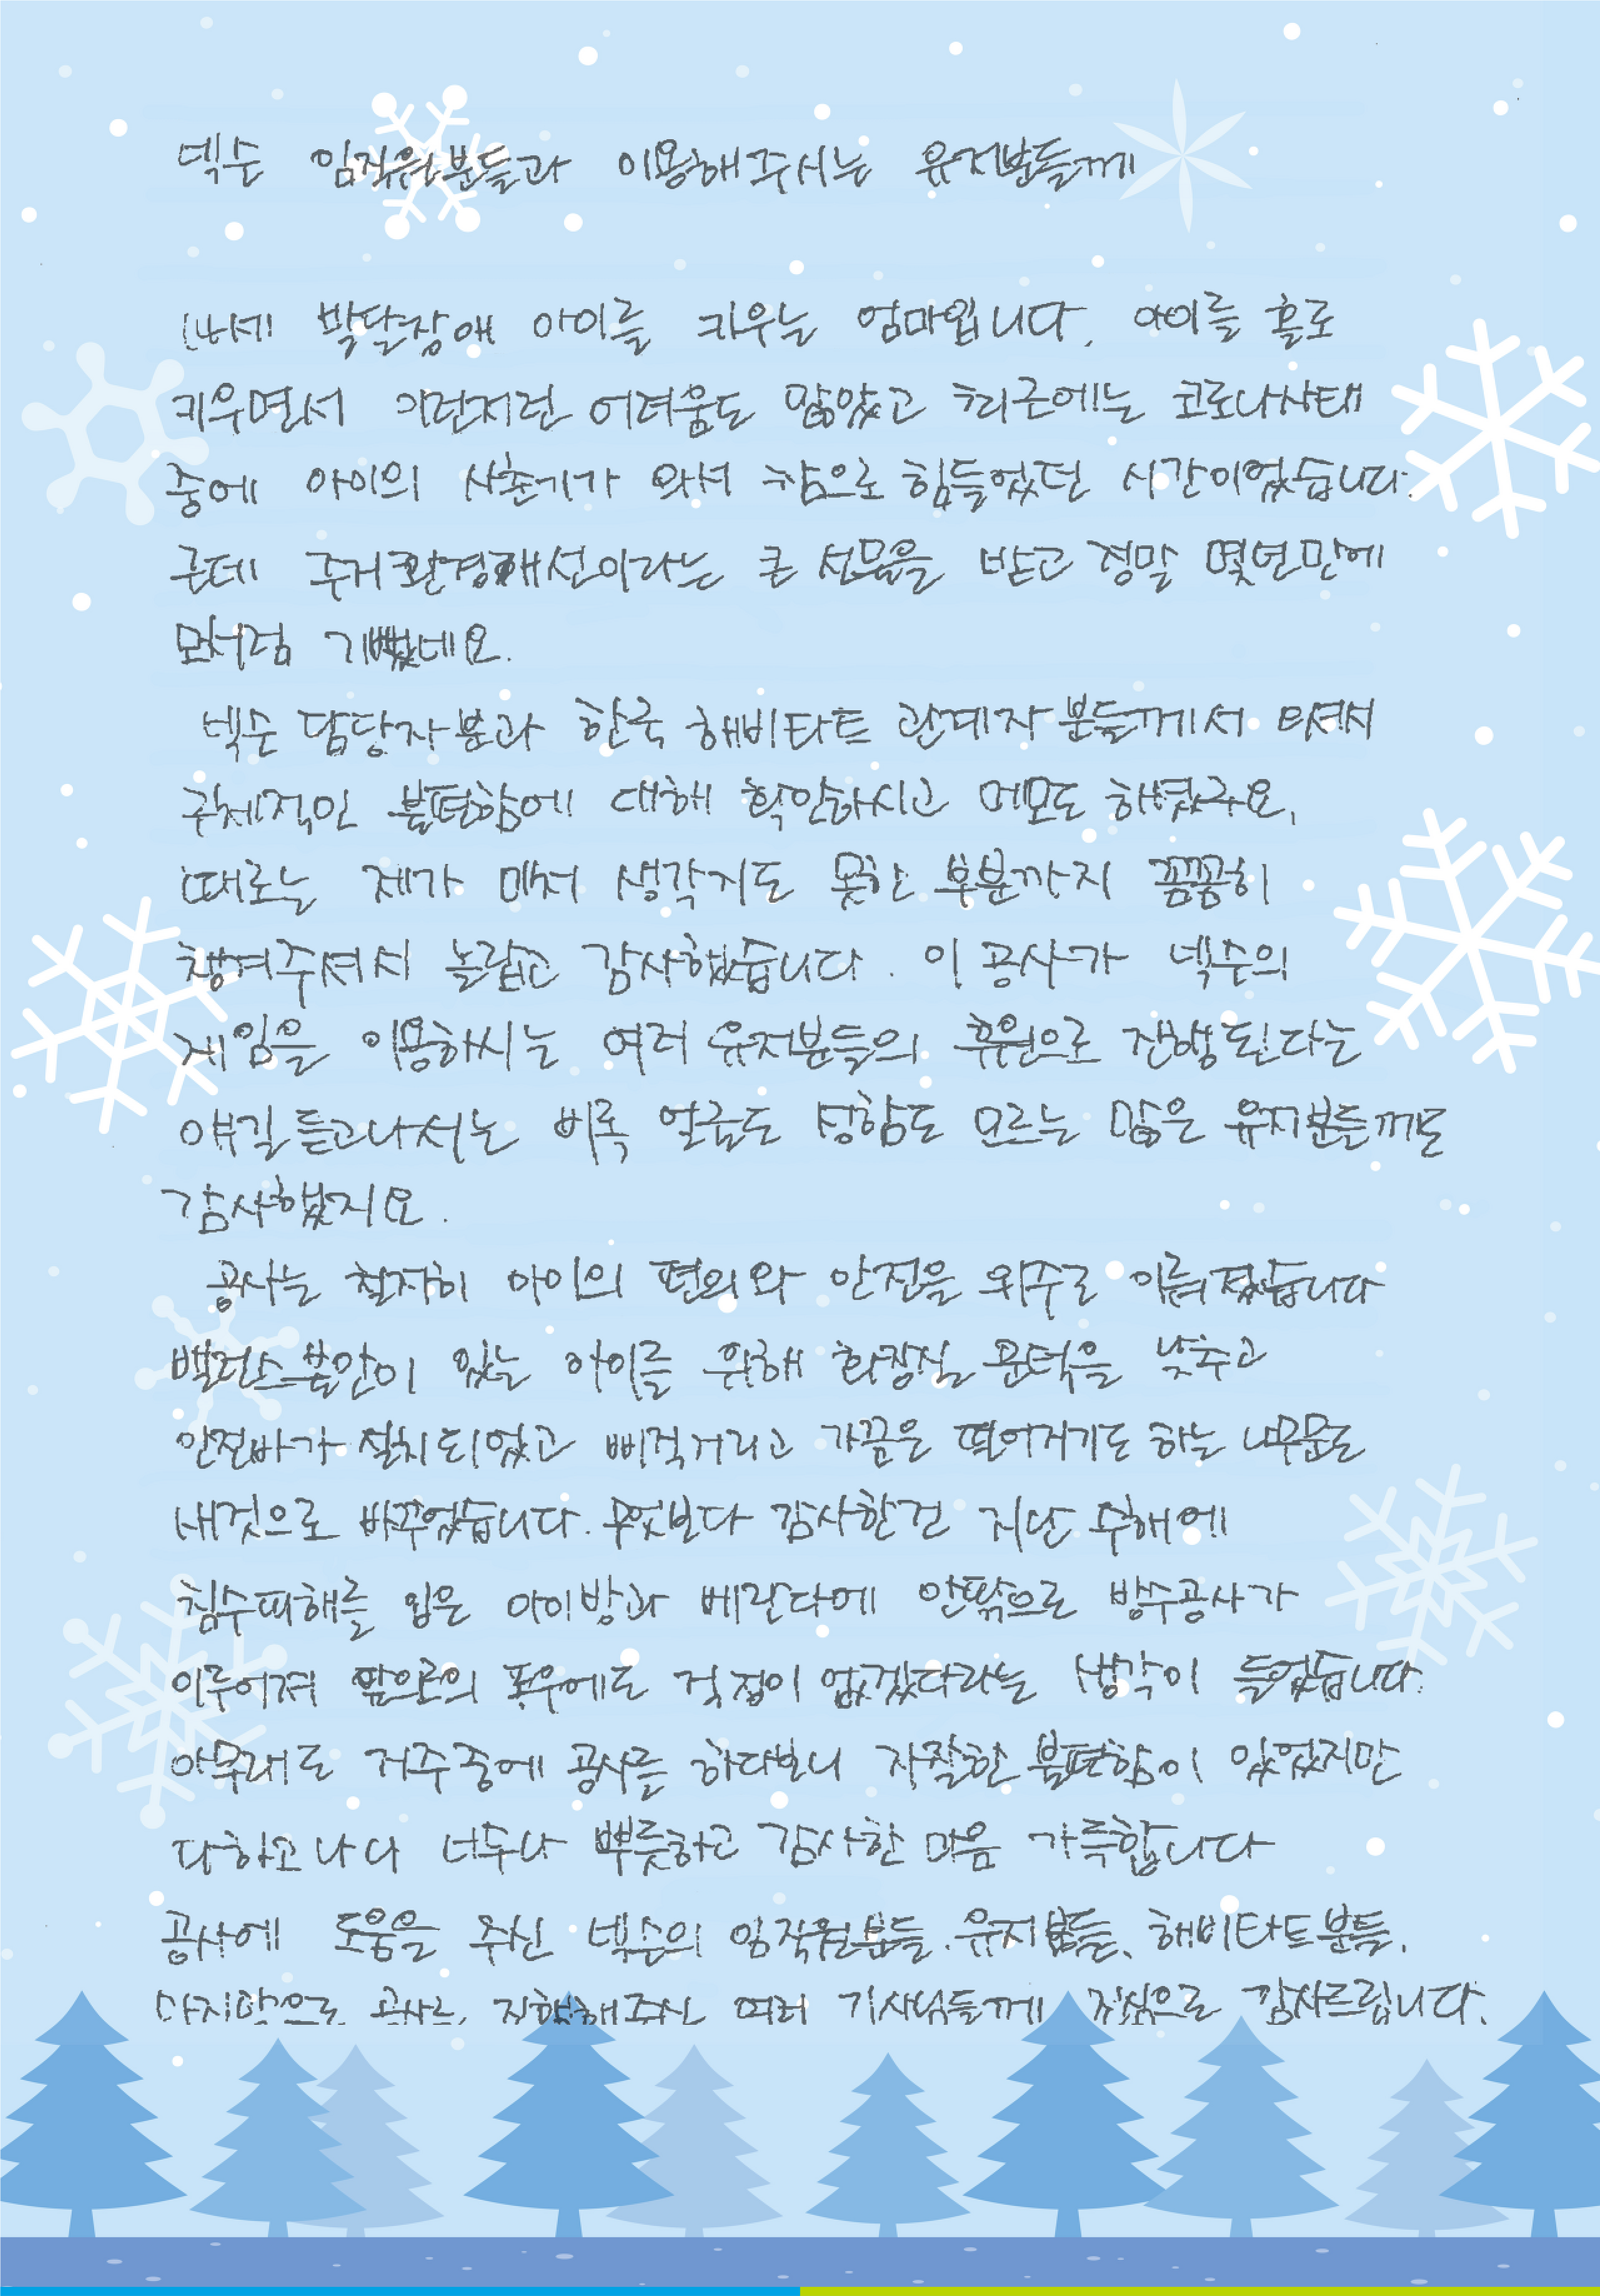 넥슨 임직원분들과 이용해주시는 유저분들께
14세 발달장애 아이를 키우는 엄마입니다. 아이를 홀로
키우면서 이런저런 어려움도 많았고 최근에는 코로나사태
중에 아이의 사춘기가 와서 참으로 힘들었던 시간이었습니다.
근데 주거환경개선이라는 큰 선물을 받고 정말 몇년만에
모처럼 기뻤네요.
넥슨 담당자분과 한국 해비타트 관계자분들께서 오셔서
구체적인 불편함에 대해 확인하시고 메모도 하셨구요.
때로는 제가 미처 생각지도 못한 부분까지 꼼꼼히
챙겨주셔서 놀랍고 감사했습니다. 이 공사가 넥슨의
게임을 이용하시는 여러 유저분들의 후원으로 진행된다는
얘길 듣고나서는 비록 얼굴도 성함도 모르는 많은 유저분들께도
감사했지요.
공사는 철저히 아이의 편의와 안전을 위주로 이뤄졌습니다
밸런스불안이 있는 아이를 위해 화장실 문턱을 낮추고
안전바가 설치되었고 삐걱거리고 가끔은 떨어지기도 하는 나무문도
새것으로 바꾸었습니다. 무엇보다 감사한건 지난 수해에
침수피해를 입은 아이방과 베란다에 안팎으로 방수공사가
이루어져 앞으로의 폭우에도 걱정이 없겠다라는 생각이 들었습니다.
아무래도 거주중에 공사를 하다보니 자잘한 불편함이 있었지만
다하고나니 너무나 뿌듯하고 감사한 마음 가득합니다
공사에 도움을 주신 넥슨의 임직원분들, 유저분들, 해비타트분들,
마지막으로 공사를 진행해주신 여러 기사님들께 진심으로 감사드립니다.